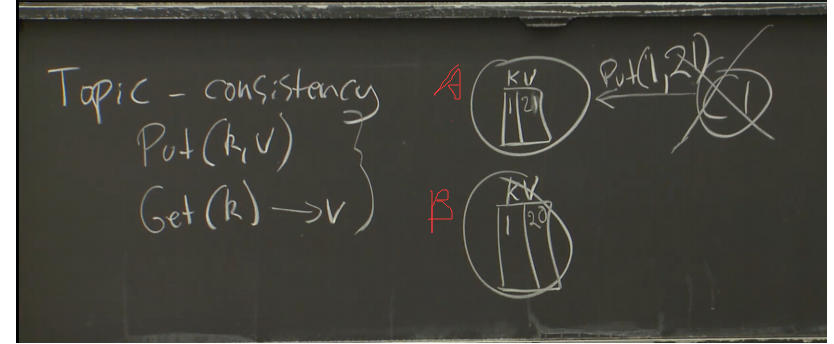 Topic - consistency
Put(k, v)
Get(k) → v
A
K V
1 21
Put(1, 21)
C1
B
K V
1 20